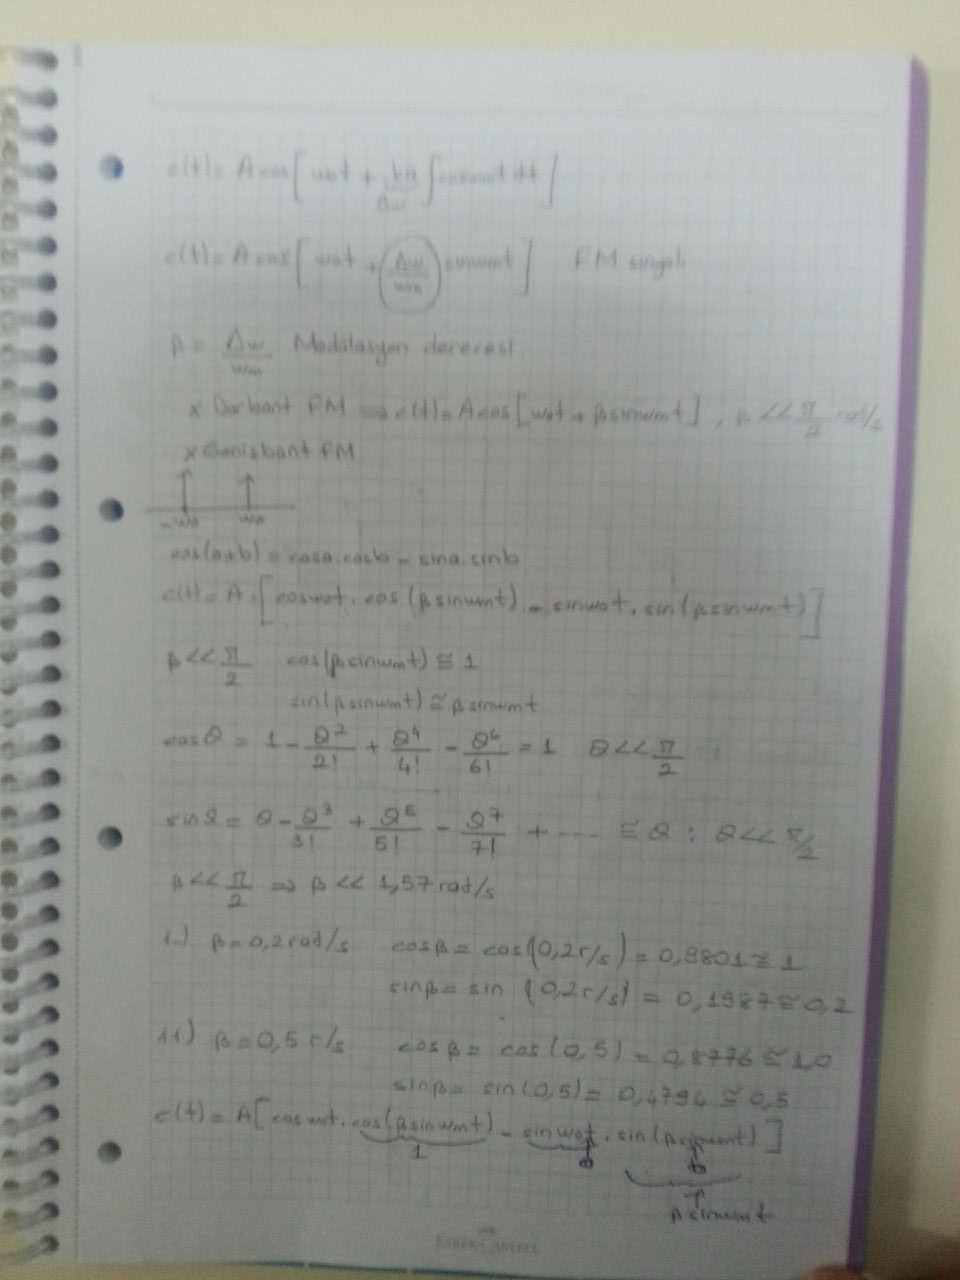 e(t) = A cos[ wot + ka/Δw ∫coswmt dt ]
e(t) = A cos[ wot + Δw/wm sinwmt ] FM sinyali
β = Δw/wm Modülasyon derecesi
x Darbant FM ⇒ e(t) = A cos[wot + βsinwmt] , β << π/2 rad/s
x Genişbant FM
-wo wo
cos(a+b) = cosa.cosb - sina.sinb
e(t) = A [coswot.cos(βsinwmt) - sinwot.sin(βsinwmt)]
β << π/2 cos(βsinwmt) ≅ 1
sin(βsinwmt) ≅ βsinwmt
cosθ = 1 - θ²/2! + θ⁴/4! - θ⁶/6! = 1 θ << π/2
sinθ = θ - θ³/3! + θ⁵/5! - θ⁷/7! + ---- ≅ θ : θ << π/2
β << π/2 ⇒ β << 1,57 rad/s
i.) β = 0,2 rad/s cosβ = cos(0,2r/s) = 0,9801 ≅ 1
sinβ = sin (0,2r/s) = 0,1987 ≅ 0,2
ii) β = 0,5 r/s cosβ = cos(0,5) = 0,8776 ≅ 1,0
sinβ = sin(0,5) = 0,4794 ≅ 0,5
e(t) = A[coswot.cos(βsinwmt) - sinwot.sin(βsinwmt)]
1
βsinwmt
FABER-CASTELL